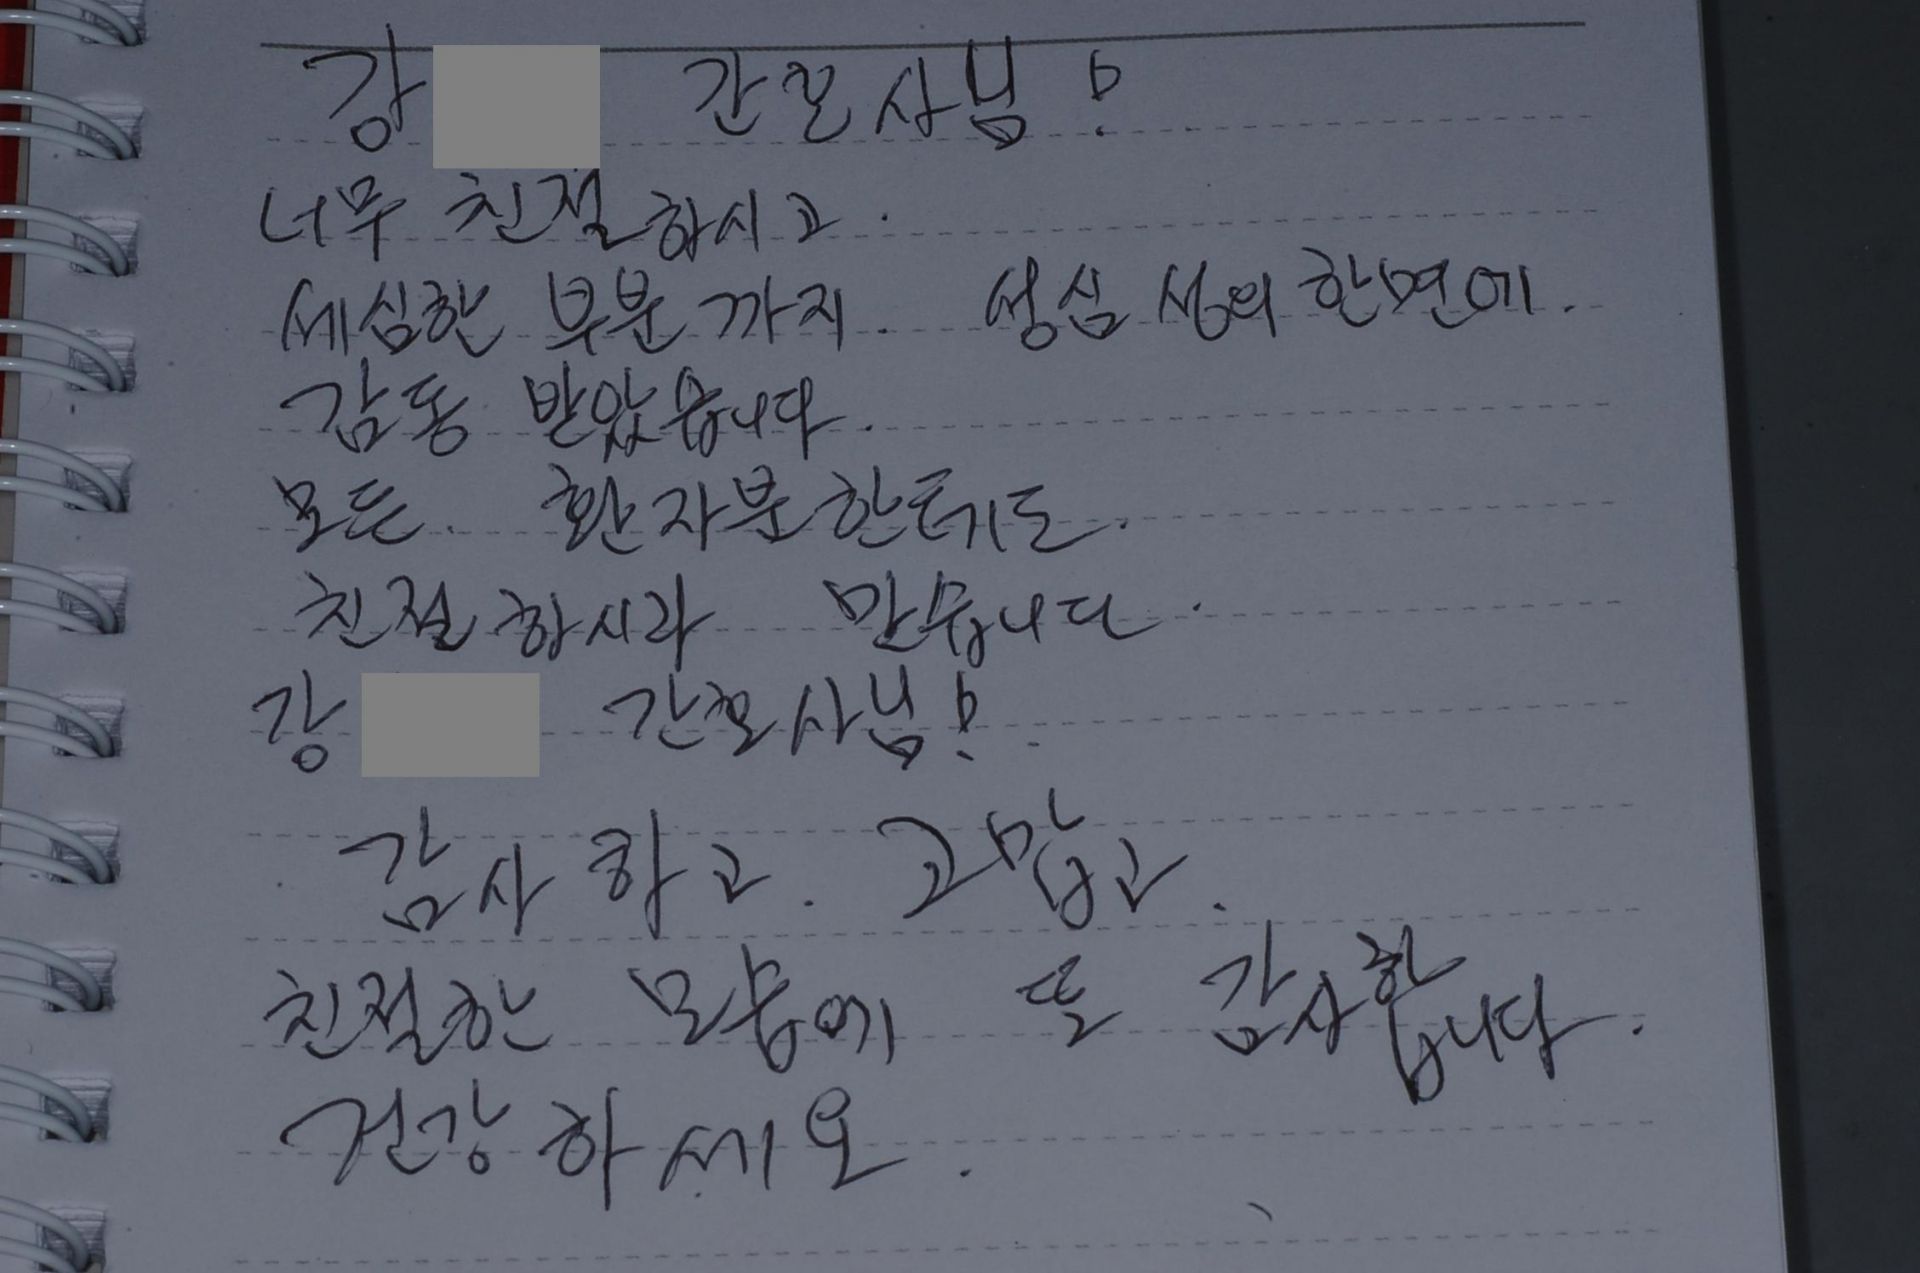 강 간호사님!
너무 친절하시고.
세심한 부분까지. 성심 성의 한면에.
감동 받았습니다.
모든. 환자분한테도.
친절하시라 믿습니다.
강 간호사님!
감사하고. 고맙고.
친절한 모습에 또 감사합니다.
건강하세요.